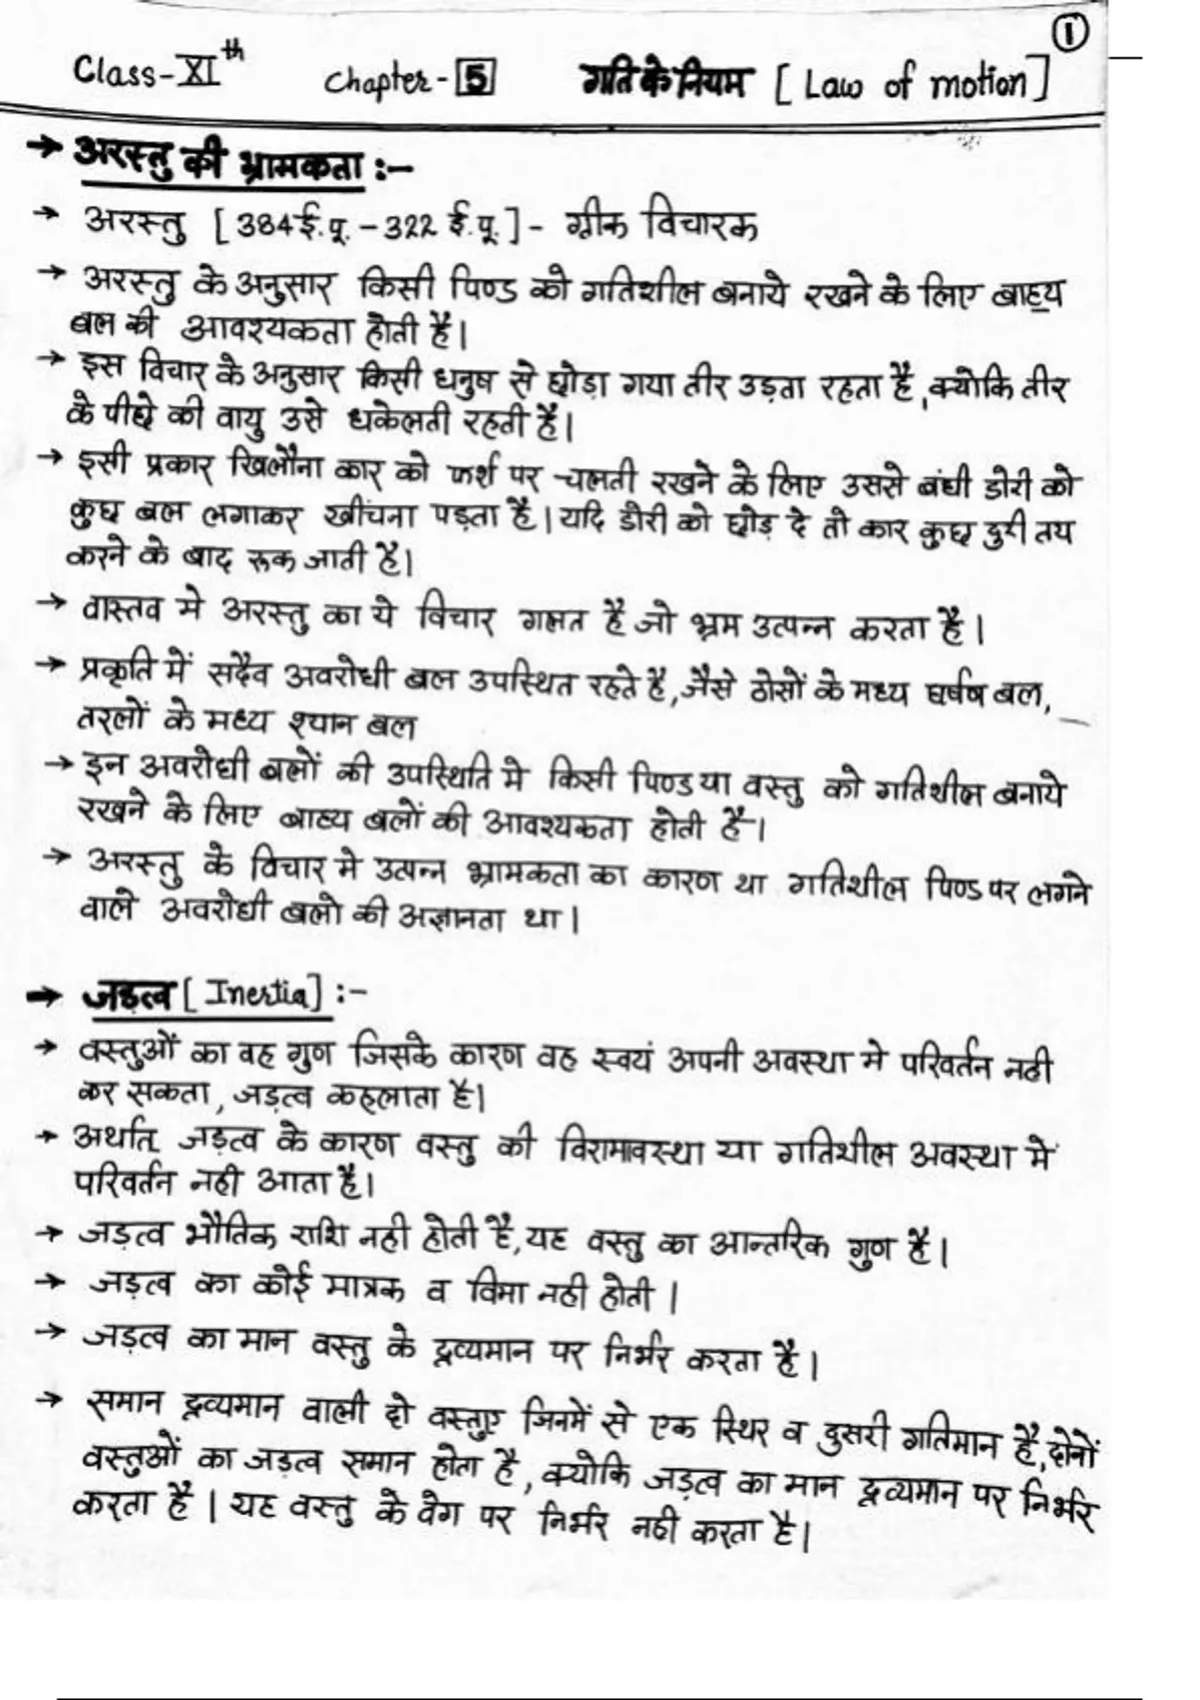 ①
Class-XIth Chapter-5 गति के नियम [ Law of motion ]
→ अरस्तु की भ्रामकता :-
→ अरस्तु [384 ई.पू. – 322 ई.पू.] - ग्रीक विचारक
→ अरस्तु के अनुसार किसी पिण्ड को गतिशील बनाये रखने के लिए बाह्य
बल की आवश्यकता होती है।
→ इस विचार के अनुसार किसी धनुष से छोड़ा गया तीर उड़ता रहता है, क्योकि तीर
के पीछे की वायु उसे धकेलती रहती है।
→ इसी प्रकार खिलौना कार को फर्श पर चलती रखने के लिए उससे बंधी डोरी को
कुछ बल लगाकर खींचना पड़ता है। यदि डोरी को छोड़ दे तो कार कुछ दुरी तय
करने के बाद रूक जाती है।
→ वास्तव मे अरस्तु का ये विचार गलत है जो भ्रम उत्पन्न करता है।
→ प्रकृति में सदैव अवरोधी बल उपस्थित रहते है, जैसे ठोसों के मध्य घर्षण बल,
तरलों के मध्य श्यान बल
→ इन अवरोधी बलों की उपस्थिति मे किसी पिण्ड या वस्तु को गतिशील बनाये
रखने के लिए बाह्य बलों की आवश्यकता होती है।
→ अरस्तु के विचार मे उत्पन्न भ्रामकता का कारण था गतिशील पिण्ड पर लगने
वाले अवरोधी बलो की अज्ञानता था।
→ जड़त्व [ Inertia] :-
→ वस्तुओं का वह गुण जिसके कारण वह स्वयं अपनी अवस्था मे परिवर्तन नही
कर सकता, जड़त्व कहलाता है।
→ अर्थात् जड़त्व के कारण वस्तु की विरामावस्था या गतिशील अवस्था में
परिवर्तन नही आता है।
→ जड़त्व भौतिक राशि नही होती है, यह वस्तु का आन्तरिक गुण है।
→ जड़त्व का कोई मात्रक व विमा नही होती।
→ जड़त्व का मान वस्तु के द्रव्यमान पर निर्भर करता है।
→ समान द्रव्यमान वाली दो वस्तुए जिनमें से एक स्थिर व दुसरी गतिमान है, दोनों
वस्तुओं का जड़त्व समान होता है, क्योकि जड़त्व का मान द्रव्यमान पर निर्भर
करता है। यह वस्तु के वेग पर निर्भर नही करता है।